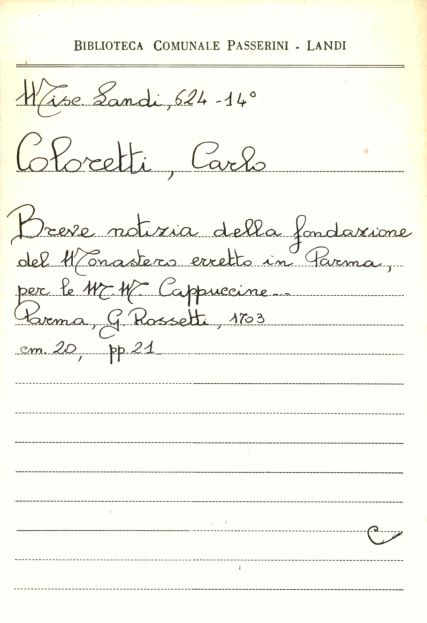 BIBLIOTECA COMUNALE PASSERINI - LANDI
Misc. Landi, 624 - 14°
Coloretti, Carlo
Breve notizia della fondazione
del Monastero erretto in Parma,
per le M. M. Cappuccine...
Parma, G. Rossetti, 1703
cm. 20, pp. 21
C